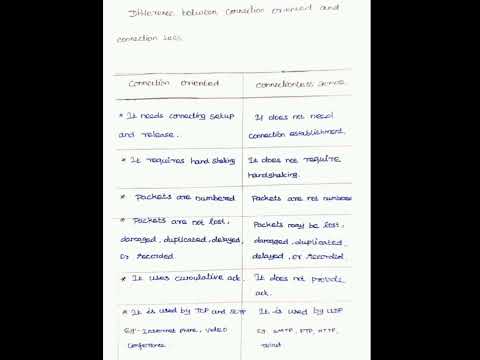 Difference between connection oriented and
connection less.
Connection oriented
connectionless service
* It needs connecting setup
and release.
It does not need
connection establishment.
* It requires hand shaking
It does not require
handshaking.
* Packets are numbered
Packets are not numbered
* Packets are not lost,
damaged, duplicated, delayed,
or recorded
Packets may be lost,
damaged, duplicated,
delayed, or recorded.
* It uses cumulative ack.
It does not provide
ack.
* It is used by TCP and
It is used by UDP
Eg:- Internet Phone, video
Conference.
Eg. SMTP, FTP, HTTP,